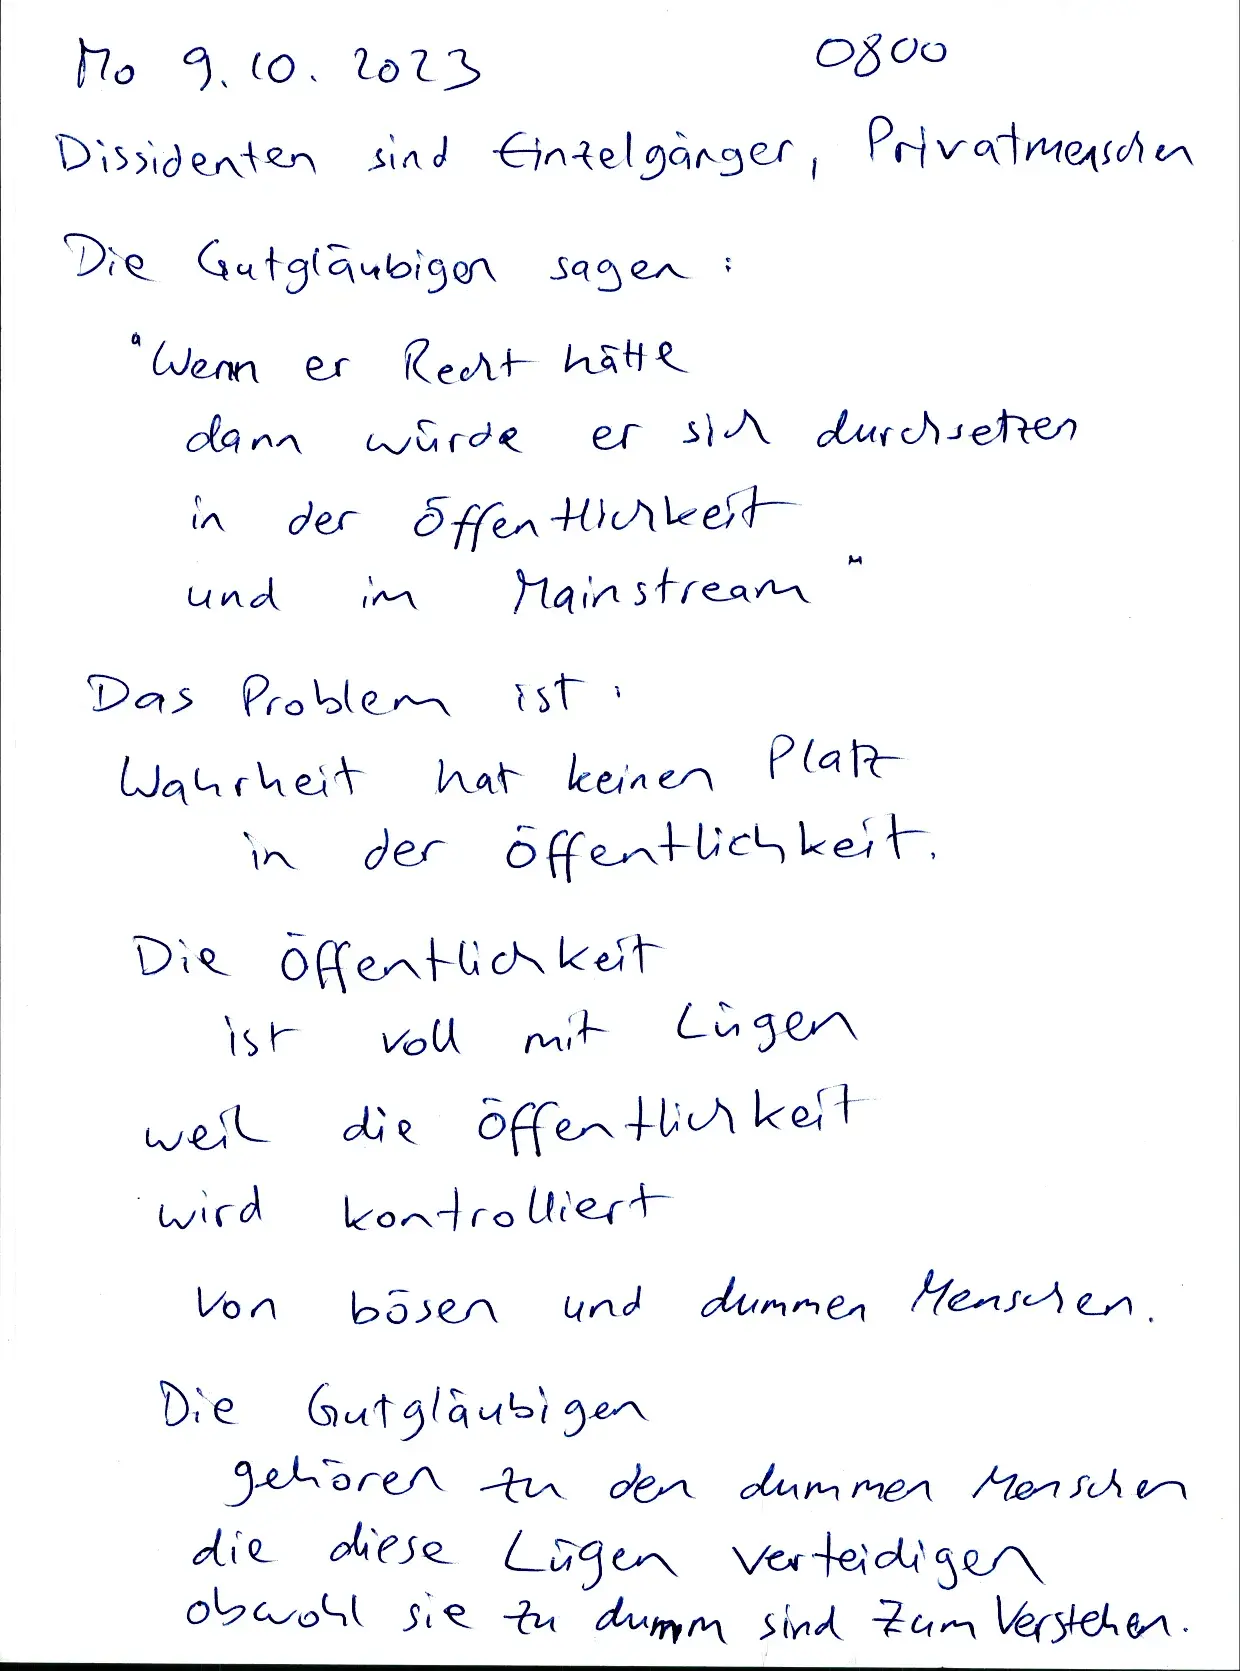 Mo 9.10.2023 0800
Dissidenten sind Einzelgänger, Privatmenschen
Die Gutgläubigen sagen:
"Wenn er Recht hätte
dann würde er sich durchsetzen
in der Öffentlichkeit
und im Mainstream"
Das Problem ist:
Wahrheit hat keinen Platz
in der Öffentlichkeit.
Die Öffentlichkeit
ist voll mit Lügen
weil die Öffentlichkeit
wird kontrolliert
von bösen und dummen Menschen.
Die Gutgläubigen
gehören zu den dummen Menschen
die diese Lügen verteidigen
obwohl sie zu dumm sind zum Verstehen.